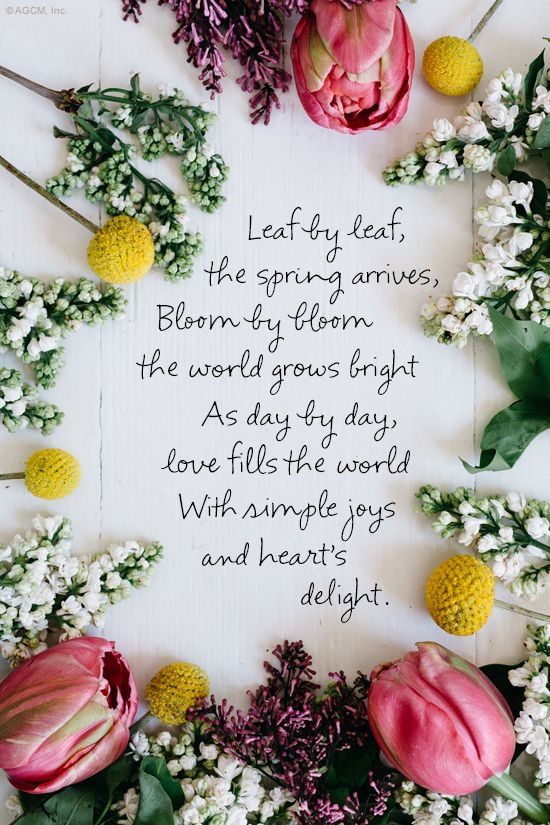 © AGCM, Inc.
Leaf by leaf,
the spring arrives,
Bloom by bloom
the world grows bright
As day by day,
love fills the world
With simple joys
and heart's
delight.